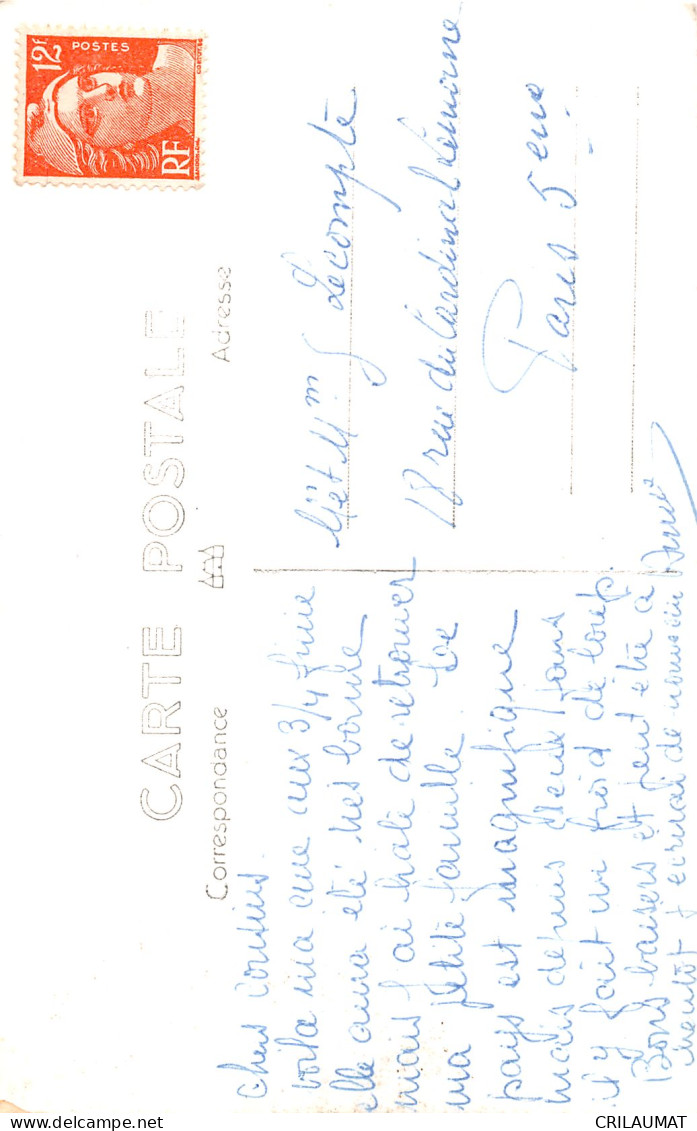 12F
POSTES
RF
CARTE POSTALE
Correspondance
Adresse
chers cousins
voila ma cure aux 3/4 finie
elle aura été tres bonne
mais j'ai hate de retrouver
ma petite famille Le
pays est magnifique
mais depuis deux jours
il y fait un froid de loup.
Bons baisers et peut etre a
bientot
Mr et Mme G Lecompte
18 rue du Cardinal Lemoine
Paris 5 eme
CRILAUMAT